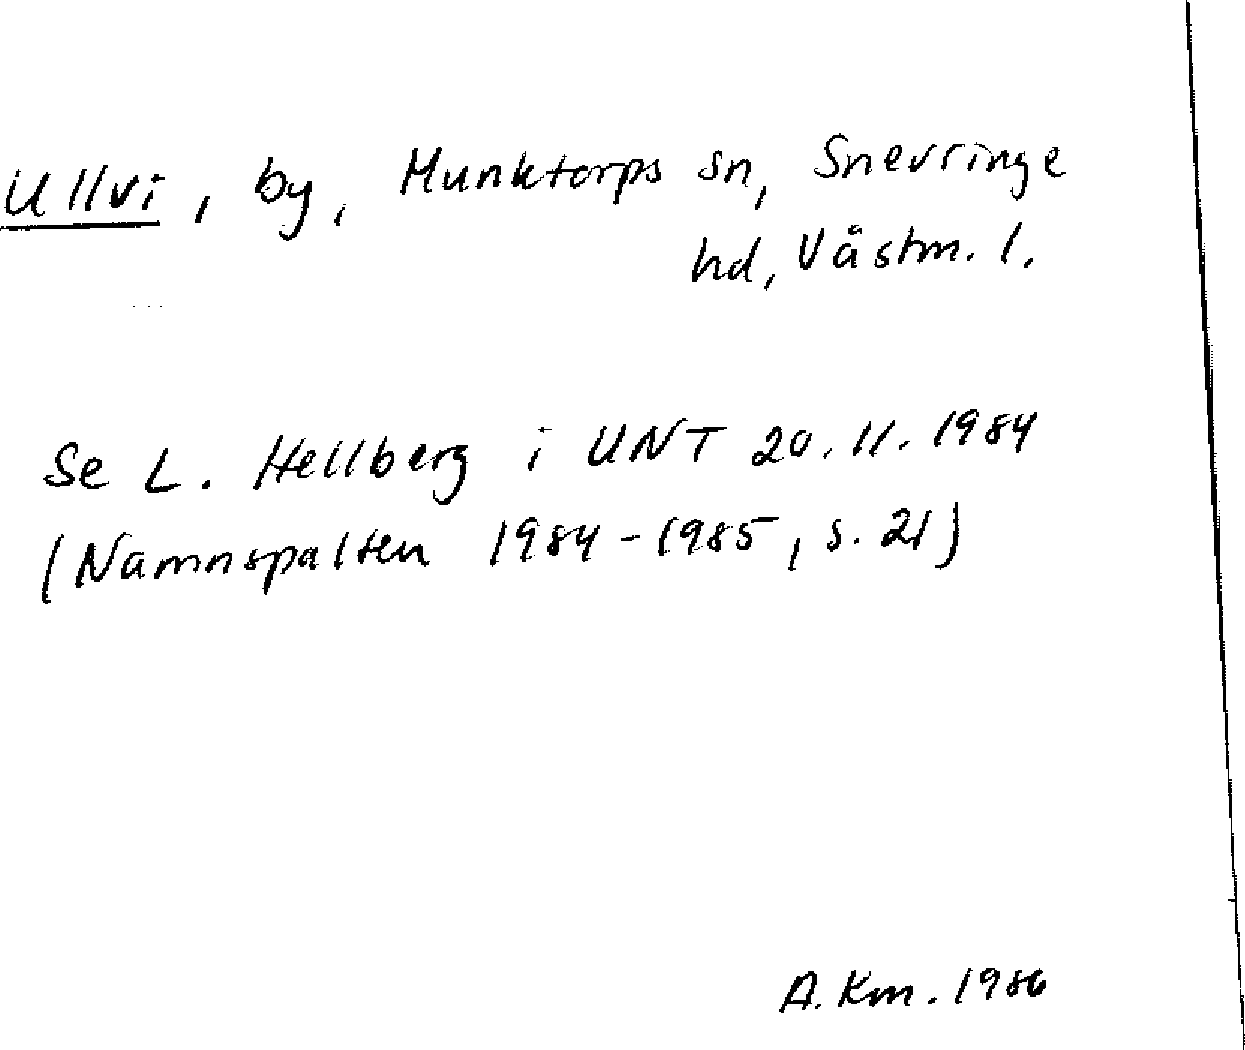 Ullvi, by, Munktorps sn, Snevringe
hd, Västm. l.
Se L. Hellberg i UNT 20.11.1984
(Namnspalten 1984-1985, s. 21)
A. Km. 1986